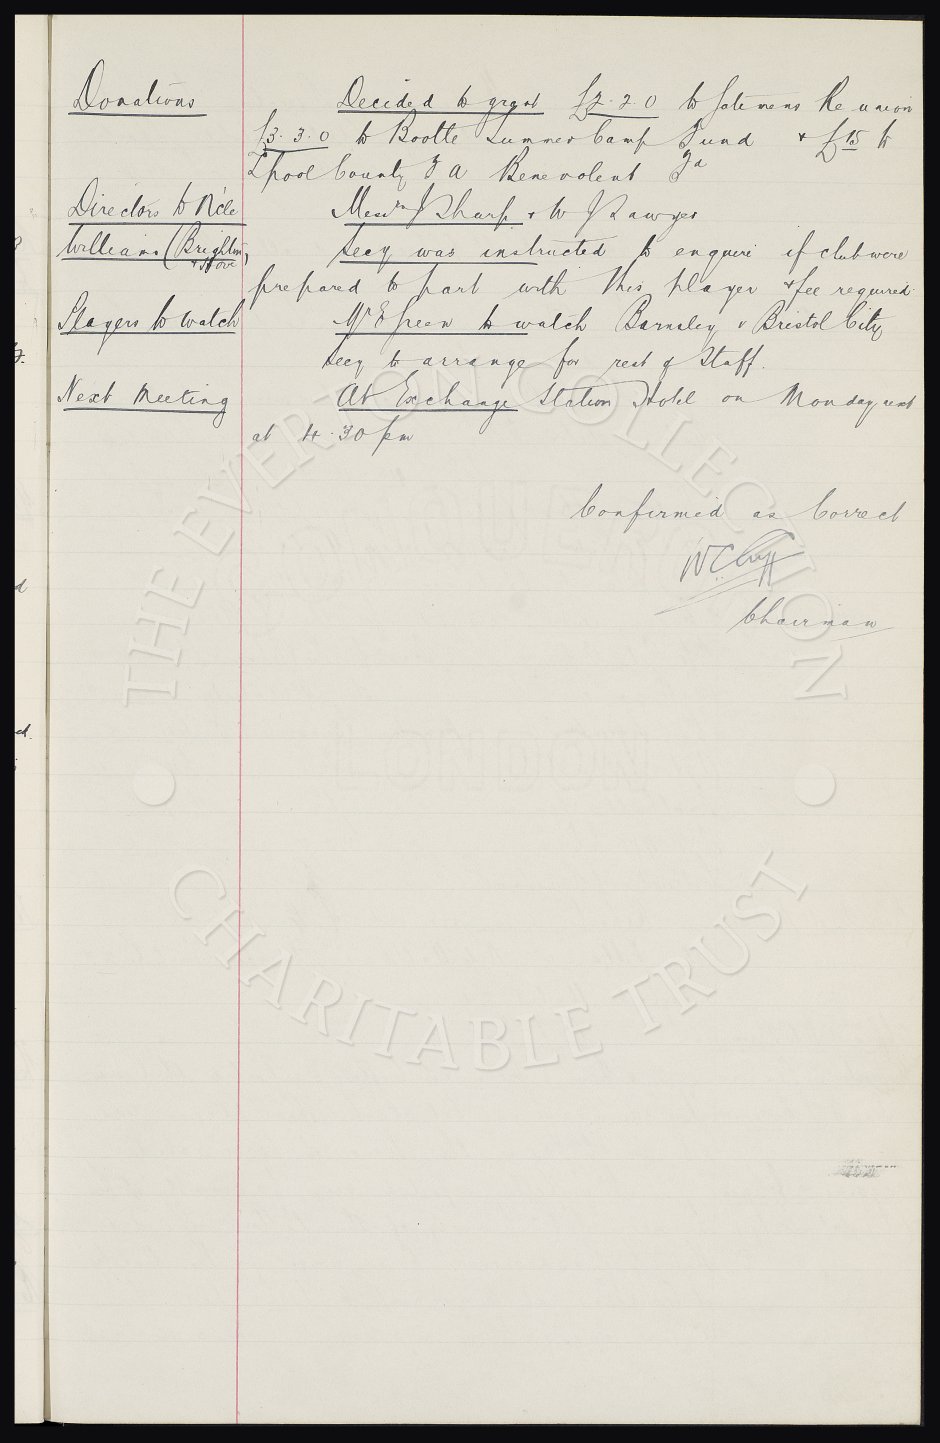 Donations Decided to grant £2. 2. 0 to Gatemens Reunion
£3. 3. 0 to Bootle Summer Camp Fund & £15 to
Lpool County F A Benevolent Fd
Directors to N'cle Messrs J Sharp & W J Sawyer
Williams (Brighton & Hove) Secy was instructed to enquire if club were
prepared to part with this player & fee required.
Players to Watch Mr E Green to watch Barnsley v Bristol City
Secy to arrange for rest of Staff.
Next Meeting At Exchange Station Hotel on Monday next
at 4. 30 pm
Confirmed as Correct
W C Cuff
Chairman
THE EVERTON COLLECTION
CHARITABLE TRUST